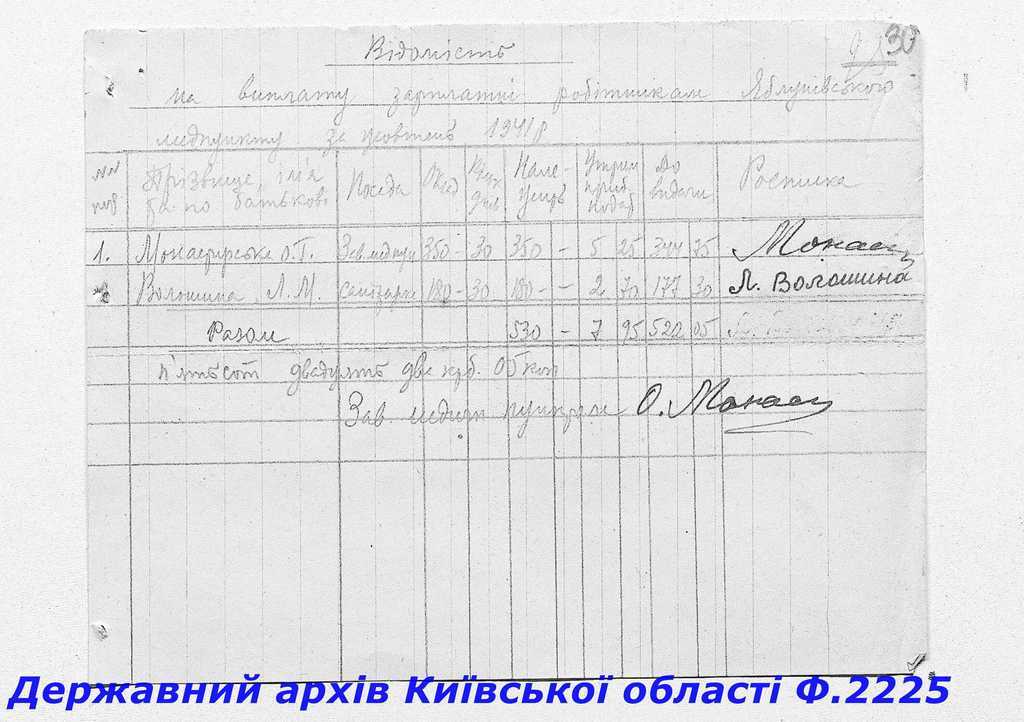 30
Відомість
на виплату зарплатні робітникам Яблунівського
медпункту за жовтень 1941 р
№№ Прізвище, ім'я та по батькові Посада Оклад Нале- Утрим приб. подат До видачи Росписка
1. Монастирське О.Т. Зав.медпун 350 - 30 350 - 5 25 344 75 Монас
Волошина Л.М. санітарка 180 - 30 180 - 2 70 177 30 Л. Волошина
Разом 530 - 7 95 522 05
п'ятьсот двадцять два крб. 05 коп
Зав. медичн пунктом О. Монас
Державний архів Київської області Ф.2225